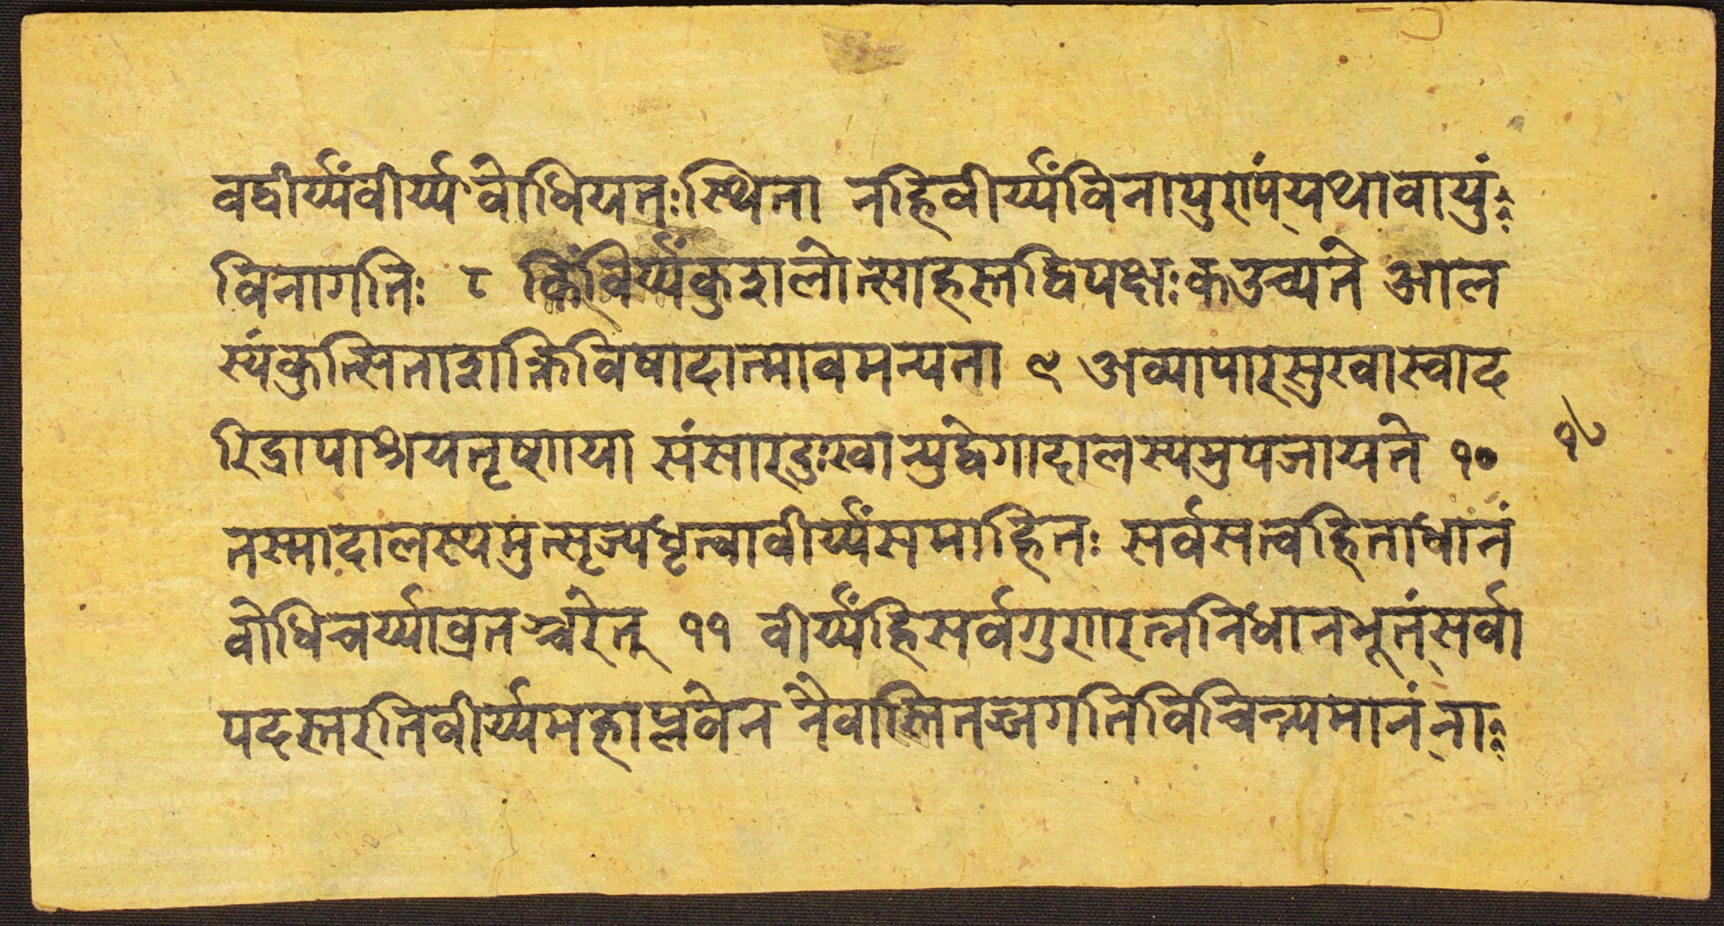 वद्वीर्य्यंवीर्य्य वोधियतःस्थिता नहिवीर्य्यंविनापुण्यंयथावायुं
विनागतिः ८ किंविर्य्यंकुशलोत्साहस्तद्विपक्षःकउच्यते आल
स्यंकुत्सिताशक्तिविषादात्मावमन्यता ९ अव्यापारसुखास्वाद
रिद्रापाश्रयतृष्णया संसारदुःखानुद्वेगादालस्यमुपजायते १०
तस्मादालस्यमुत्सृज्यधृत्वावीर्य्यंसमाहितः सर्वसत्वहिताधानं
वोधिचर्य्याव्रतञ्चरेत् ११ वीर्य्यंहिसर्वगुणरत्ननिधानभूतंसर्वा
पदस्तरतिवीर्य्यमहाप्लवेन नैवास्तितज्जगतिविचिन्त्यमानंना
१७